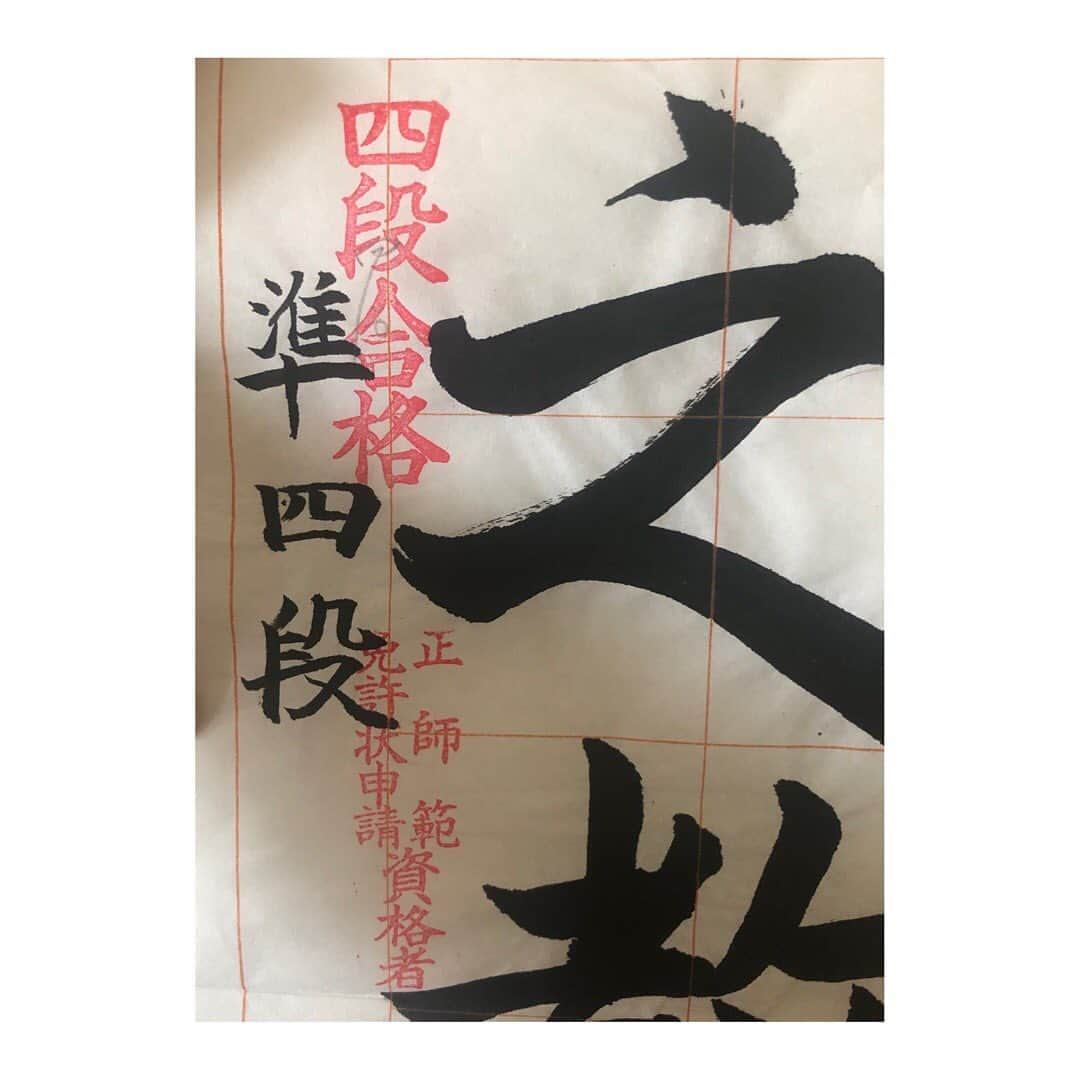 之教
四段合格
準四段
正師範
免許状申請
資格者